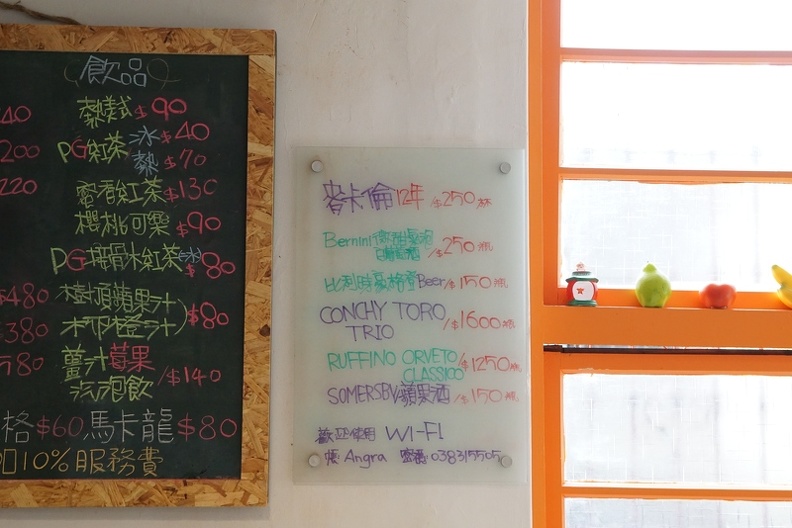 飲品
40 熱美式 $90
200 PG紅茶 冰 $40
熱 $70
220 蜜香紅茶 $130
櫻桃可樂 $90
PG 紅茶(冰) $80
$480 樹頂蘋果汁
$380 柳橙汁) $80
580 薑汁莓果
汽泡飲 /$140
格 $60 馬卡龍 $80
加10%服務費
麥卡倫12年 /$250 杯
Bernini 微甜氣泡
白葡萄酒 /$250 瓶
比利時豪格登Beer/$150 瓶
CONCHY TORO
TRIO /$1600 瓶
RUFFINO ORVETO
CLASSICO /$1250 瓶
SOMERSBY蘋果酒 /$150 瓶
歡迎使用 WI-FI
帳: Angra 密碼: 038315505